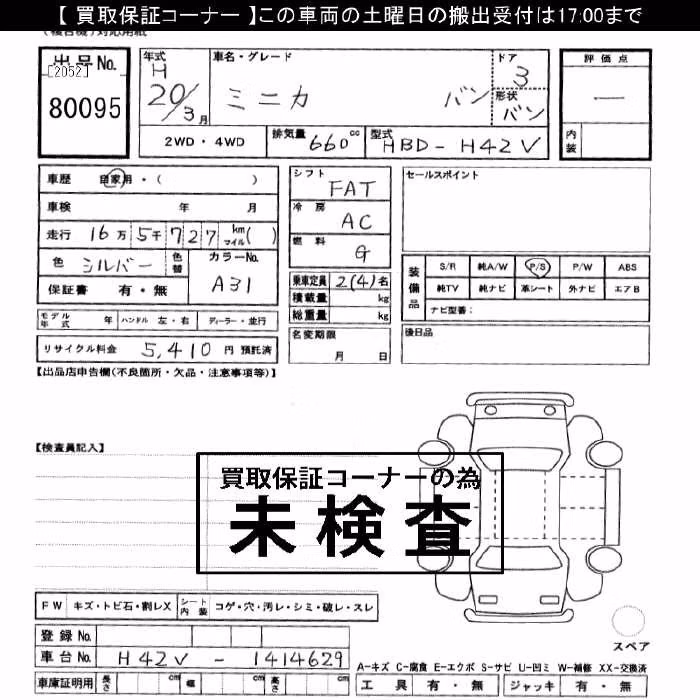 【 買取保証コーナー 】この車両の土曜日の搬出受付は17:00まで
(複合機)対応用紙
出品No.
[2052]
80095
年式
H
20/3月
車名・グレード
ミニカ バン
ドア
3
形状
バン
評価点
—
内装
2WD・4WD
排気量 660 cc
型式 HBD-H42V
車歴 自家用・( )
車検 年 月
走行 16万5千727 km マイル( )
色 シルバー 色替
カラーNo.
A31
保証書 有・無
モデル年式 年 ハンドル 左・右 ディーラー・並行
リサイクル料金 5,410円 預託済
シフト
FAT
冷房
AC
燃料
G
乗車定員 2(4)名
積載量 kg
総重量 kg
名変期限
月 日
セールスポイント
装備品
S/R 純A/W P/S P/W ABS
純TV 純ナビ 革シート 外ナビ エアB
ナビ型番:
後日品
【出品店申告欄(不良箇所・欠品・注意事項等)】
【検査員記入】
買取保証コーナーの為
未検査
FW キズ・トビ石・割レX
シート内装 コゲ・穴・汚レ・シミ・破レ・スレ
登録No.
車台No. H42V-1414629
車庫証明用 長さ cm 幅 cm 高さ cm
スペア
A-キズ C-腐食 E-エクボ S-サビ U-凹ミ W-補修 XX-交換済
工具 有・無 ジャッキ 有・無